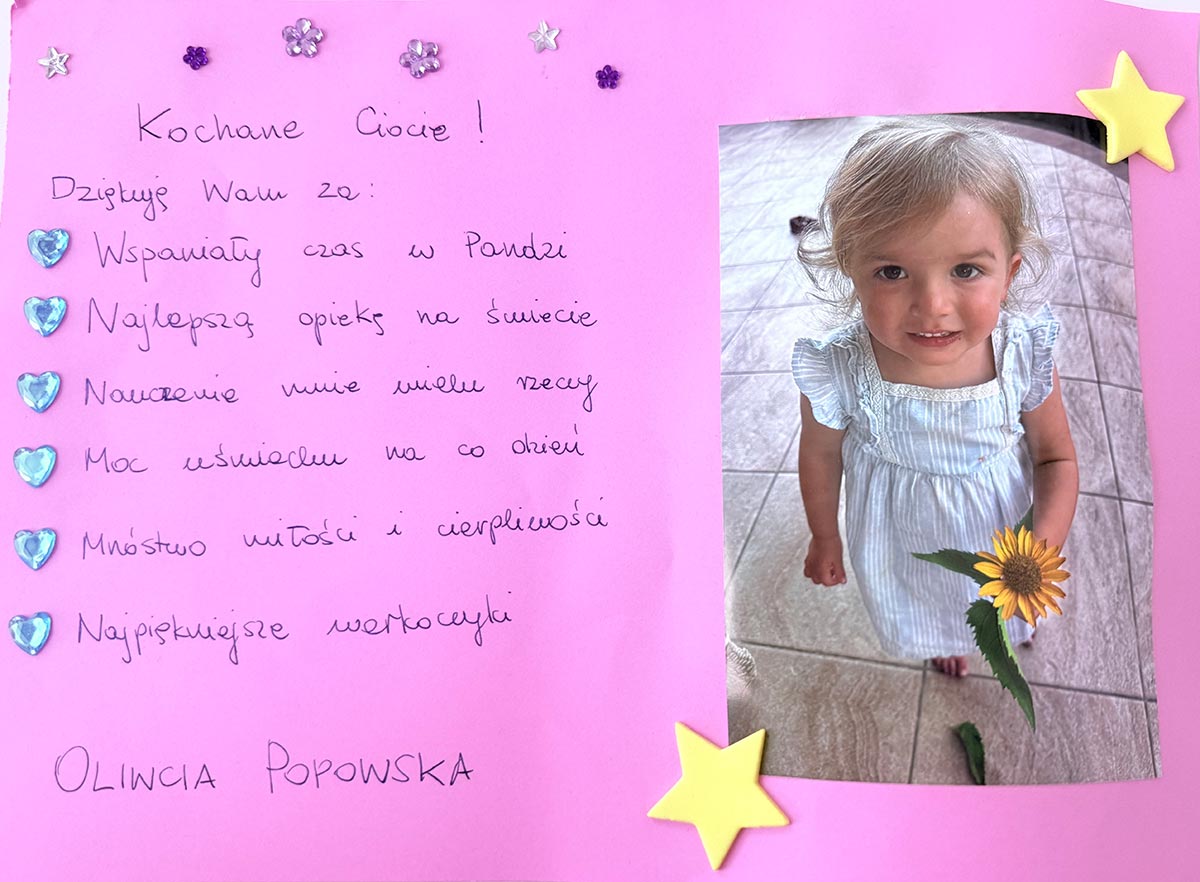 Kochane Ciocie!
Dziękuję Wam za:
Wspaniały czas w Pandzi
Najlepszą opiekę na świecie
Nauczenie mnie wielu rzeczy
Moc uśmiechu na co dzień
Mnóstwo miłości i cierpliwości
Najpiękniejsze warkoczyki
OLIWCIA POPOWSKA